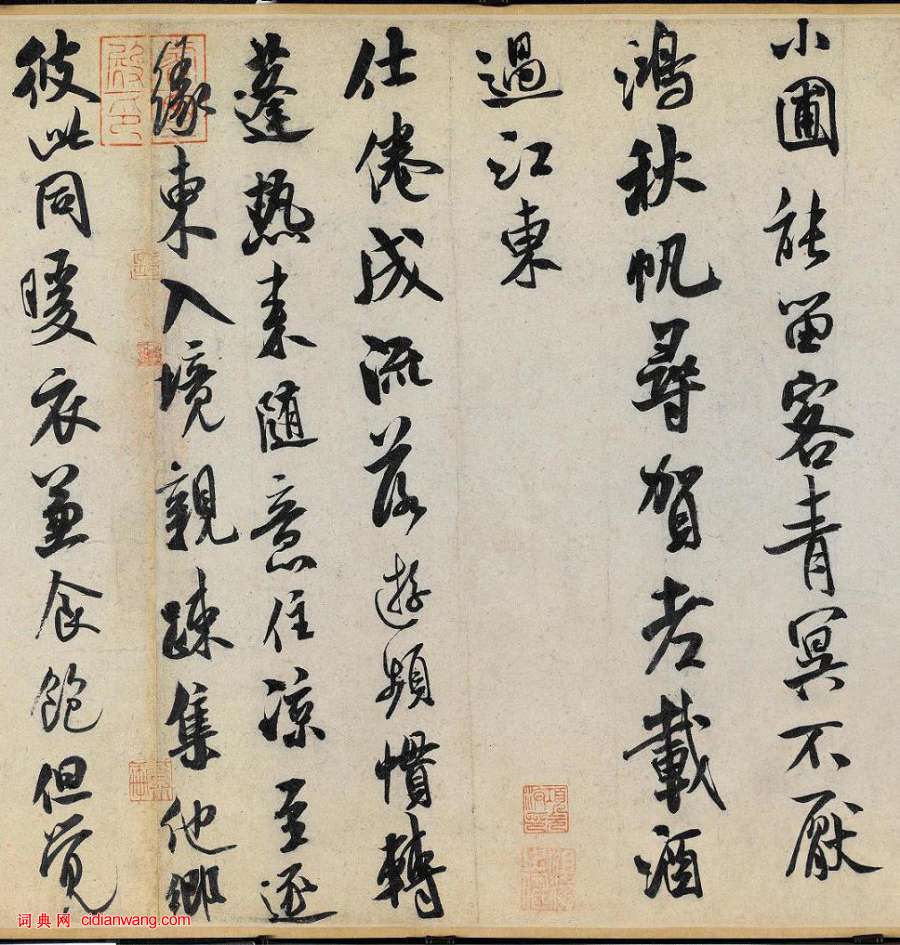 小圃能留客青冥不厭
鴻秋帆尋賀老載酒
過江東
仕倦成流落遊頻慣轉
蓬熱来随意住涼至逐
緣東入境親疎集他鄉
彼此同暖衣兼食飽但覚
词典网 cidianwang.com